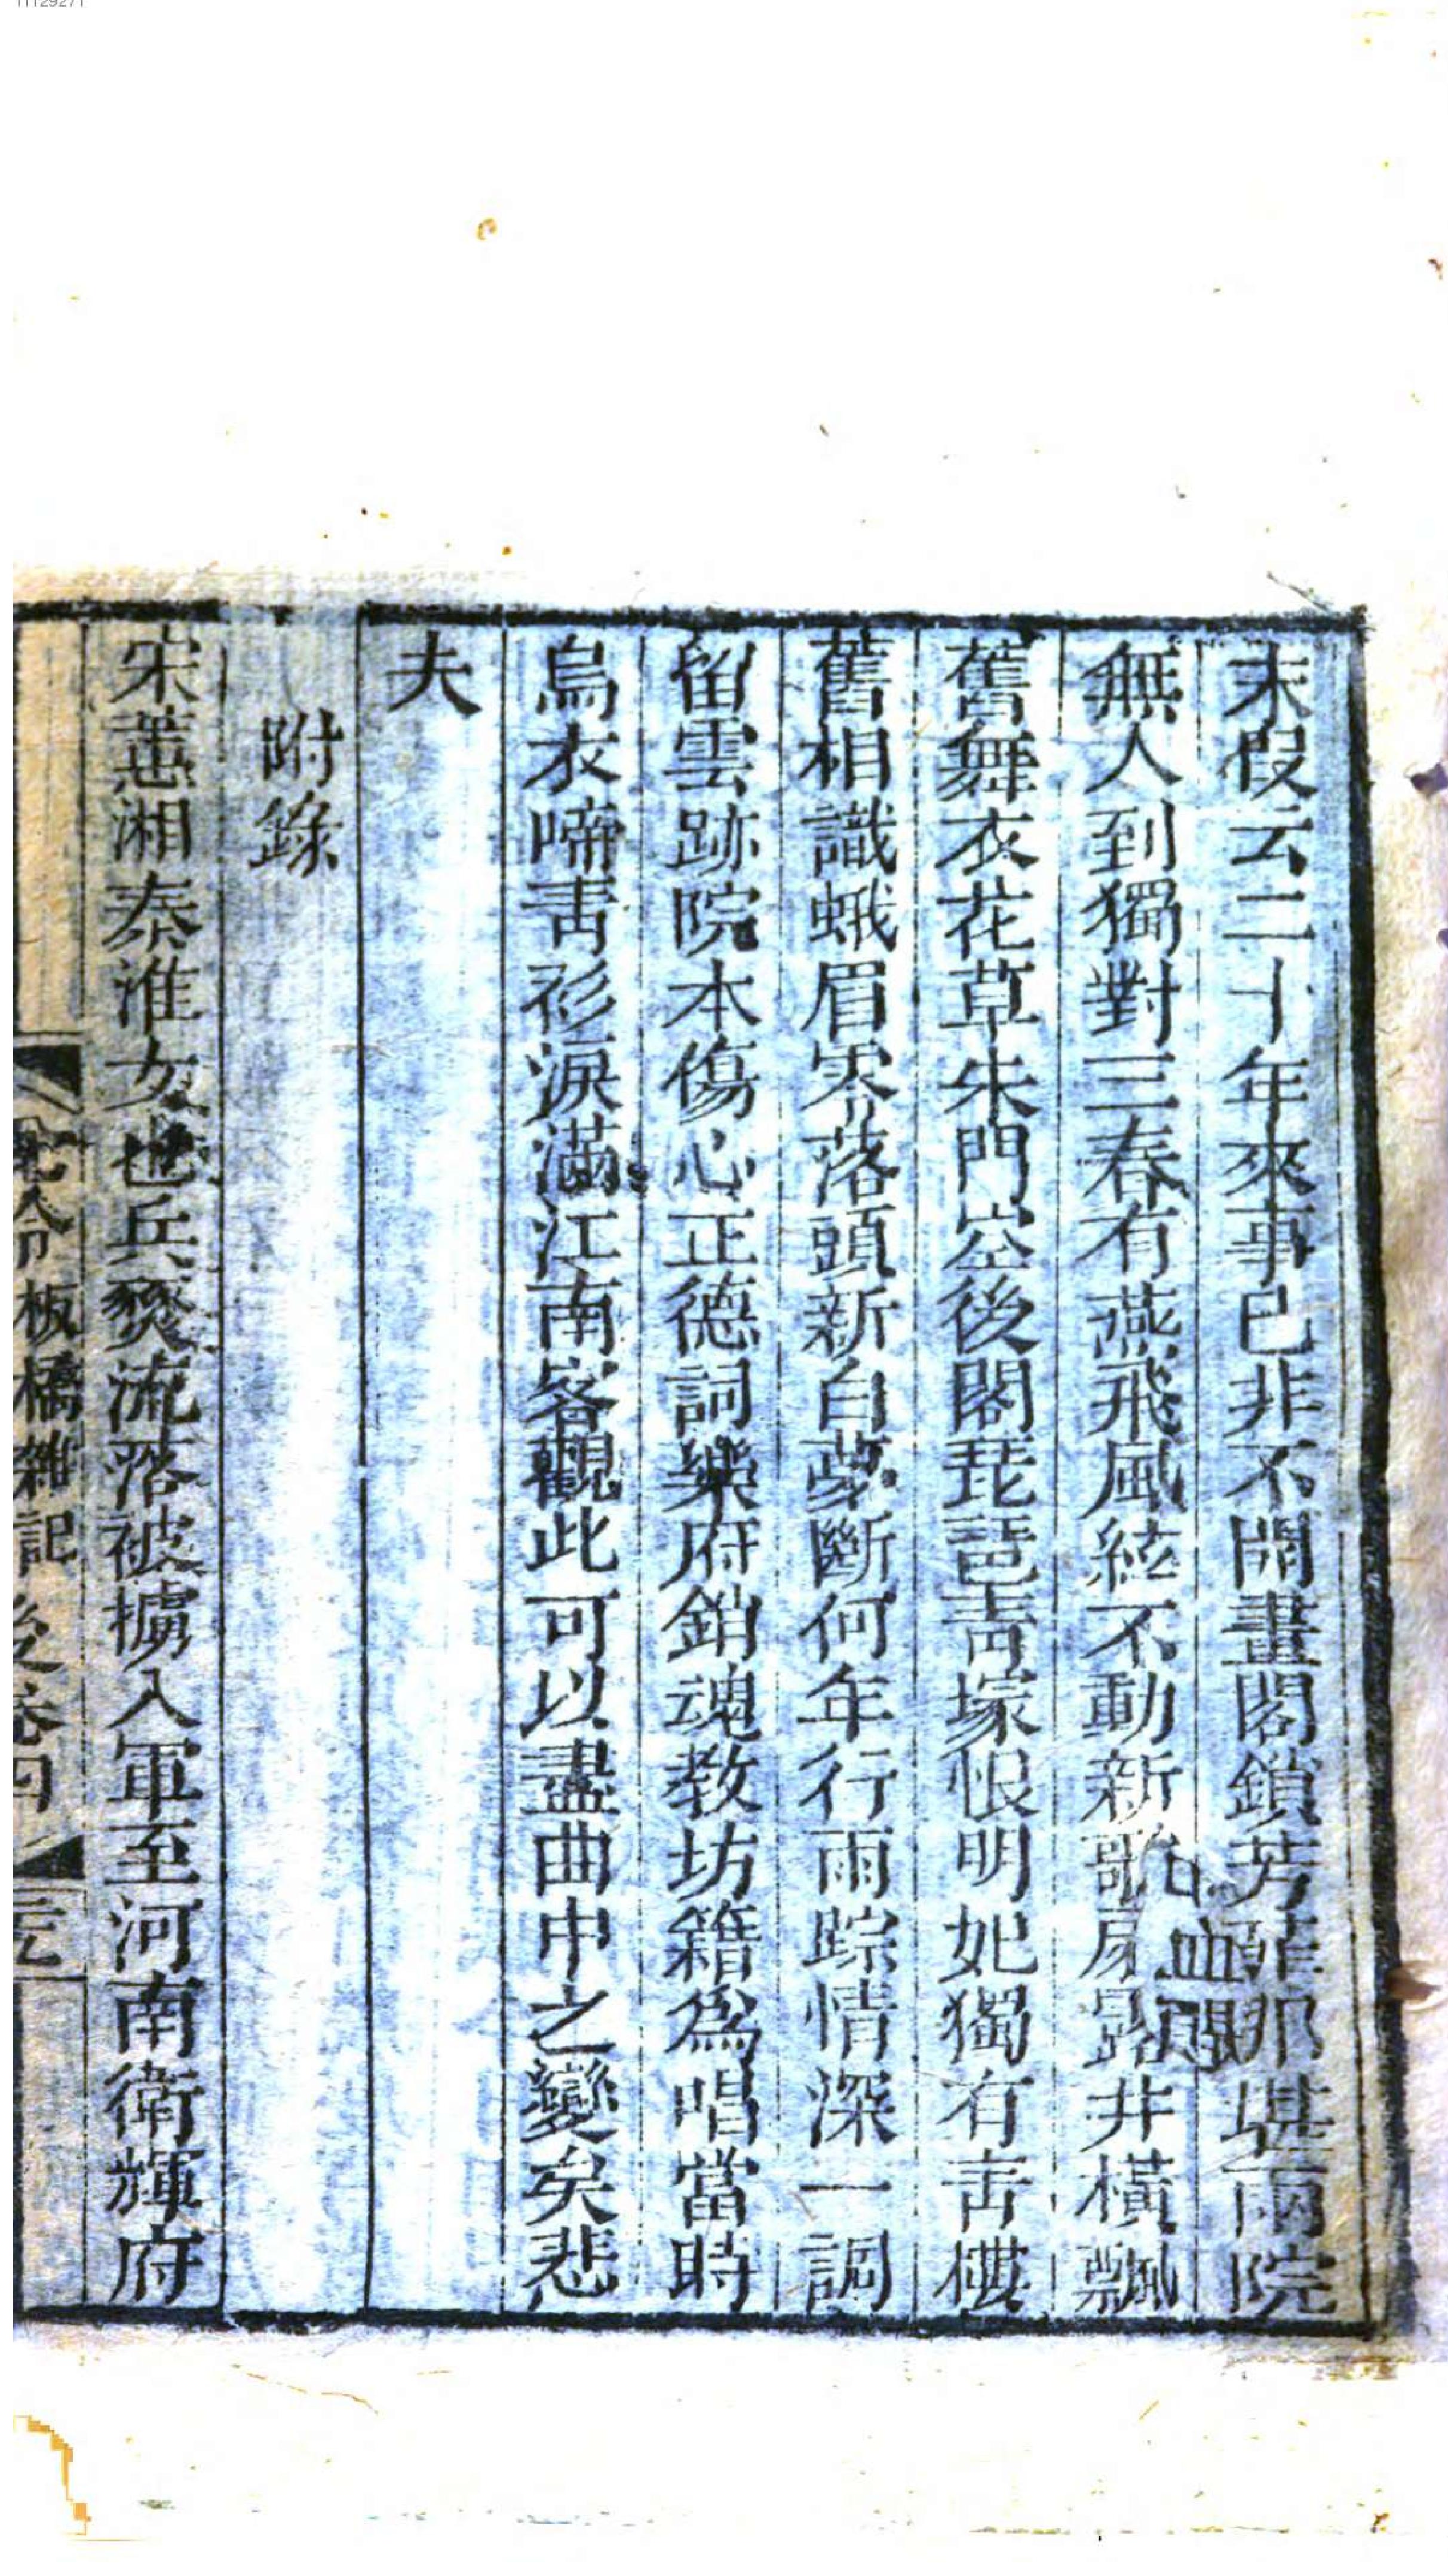 11129271
末叚云二十年來事已非不開畫閣鎖芳菲那堪兩院
無人到獨對三春有燕飛風絃不動新歌扇露井橫飄
舊舞衣花草朱門空後閣琵琶青塚恨明妃獨有青樓
舊相識蛾眉零落頭新白夢斷何年行雨踪情深一調
留雲跡院本傷心正德詞樂府銷魂教坊籍爲唱當時
烏衣啼青衫淚滿江南客觀此可以盡曲中之變矣悲
夫
附錄
宋蕙湘秦淮女也兵燹流落被擄入軍至河南衛輝府
板橋雜記 後卷四